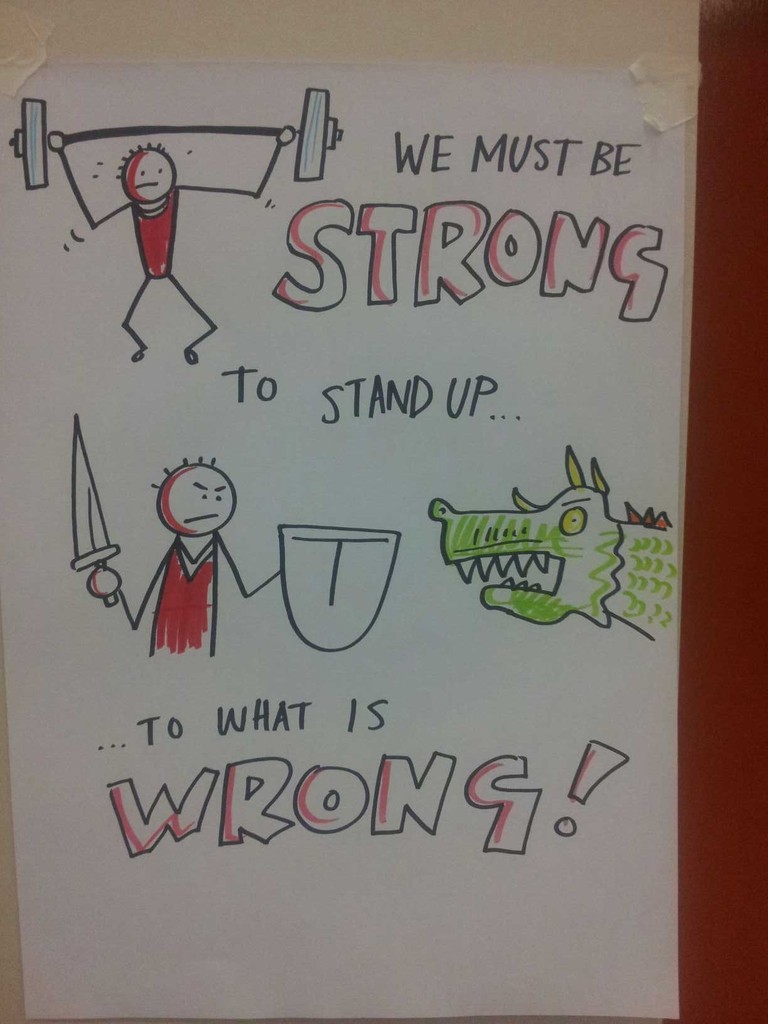 WE MUST BE
STRONG
TO STAND UP...
...TO WHAT IS
WRONG!